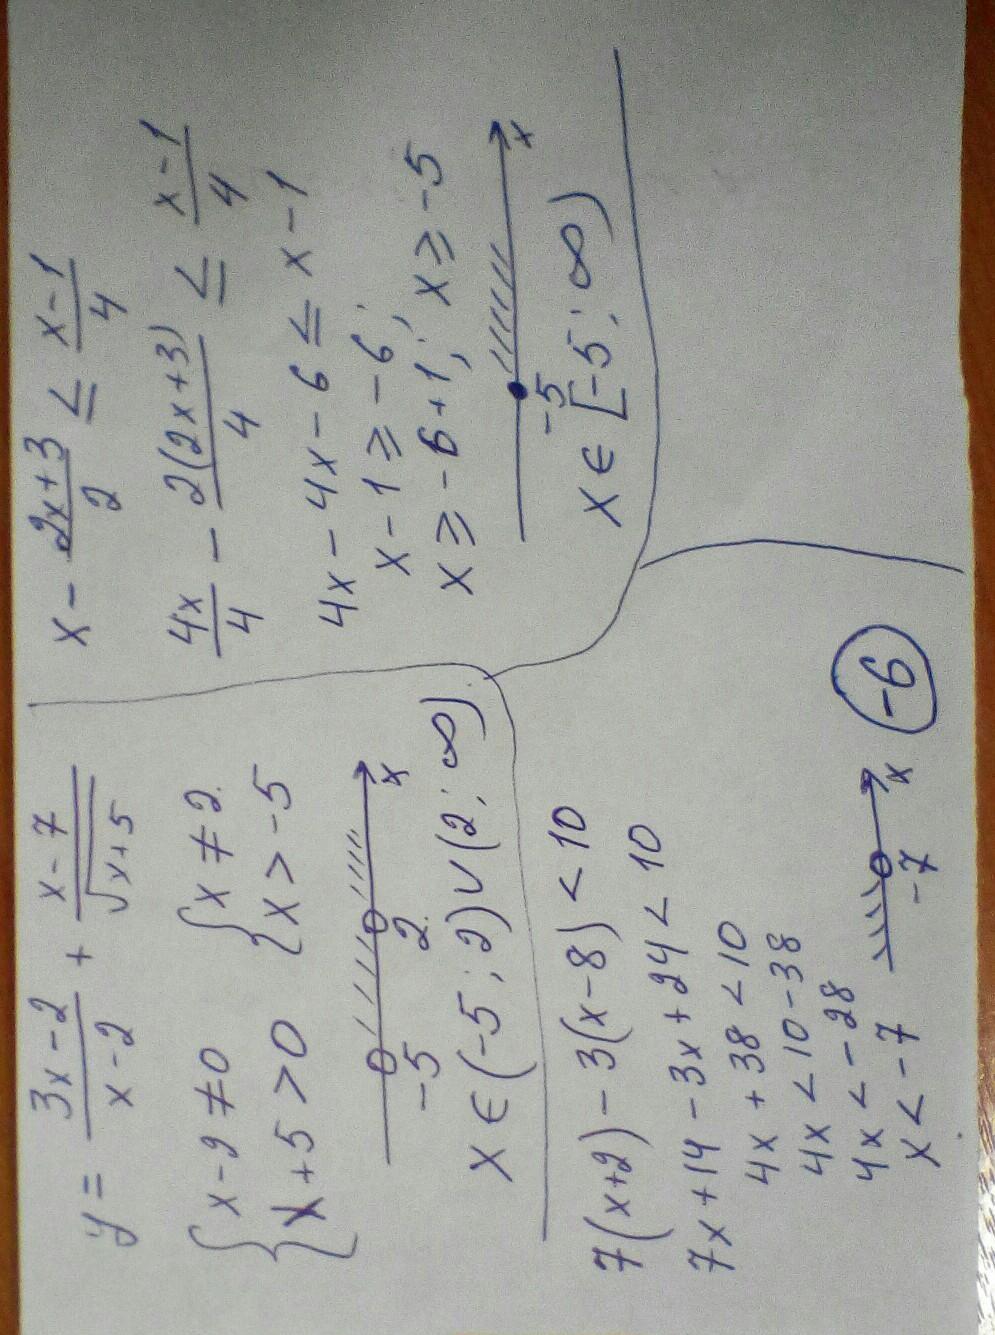 y = \frac{3x-2}{x-2} + \frac{x-7}{\sqrt{x+5}}
{ x-2 ≠ 0 { x ≠ 2
{ x+5 > 0 { x > -5
-5 2 x
x ∈ (-5; 2) ∪ (2; ∞)
x - \frac{2x+3}{2} ≤ \frac{x-1}{4}
\frac{4x}{4} - \frac{2(2x+3)}{4} ≤ \frac{x-1}{4}
4x - 4x - 6 ≤ x - 1
x - 1 ≥ -6;
x ≥ -6+1; x ≥ -5
-5 x
x ∈ [-5; ∞)
7(x+2) - 3(x-8) < 10
7x + 14 - 3x + 24 < 10
4x + 38 < 10
4x < 10 - 38
4x < -28
x < -7
-7 x
-6